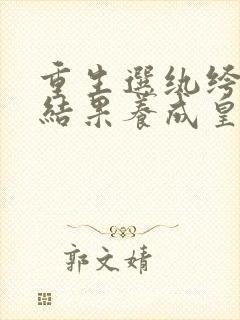 重生選紈绔
結果養成皇
郭文婧